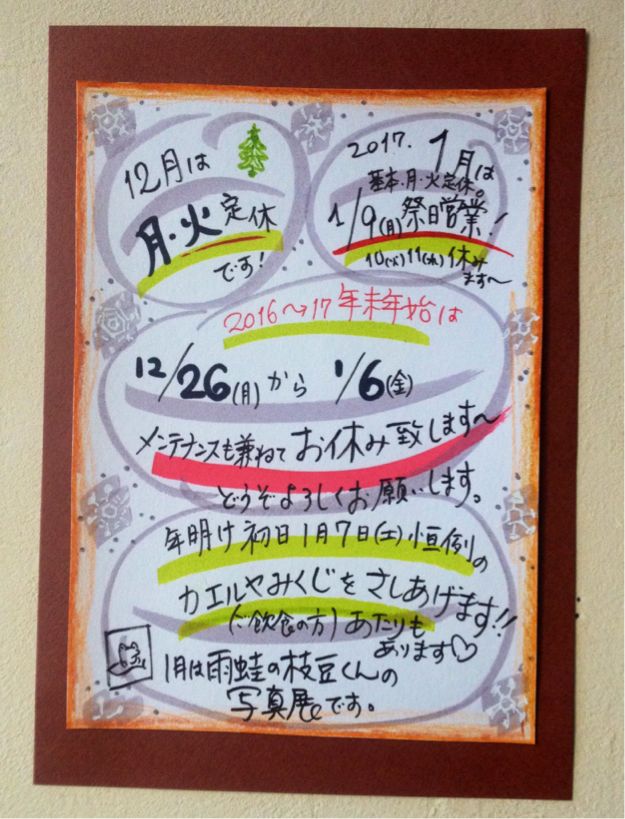 12月は
月・火定休
です!
2017. 1月は
基本月・火定休。
1/9(月)祭日営業!
10(火)11(水)休み
ます〜
2016〜17年末年始は
12/26(月)から 1/6(金)
メンテナンスも兼ねてお休み致します〜
どうぞよろしくお願いします。
年明け初日1月7日(土)恒例の
カエルやみくじをさしあげます!!
(ご飲食の方)あたりも
あります♡
1月は雨蛙の枝豆くんの
写真展です。